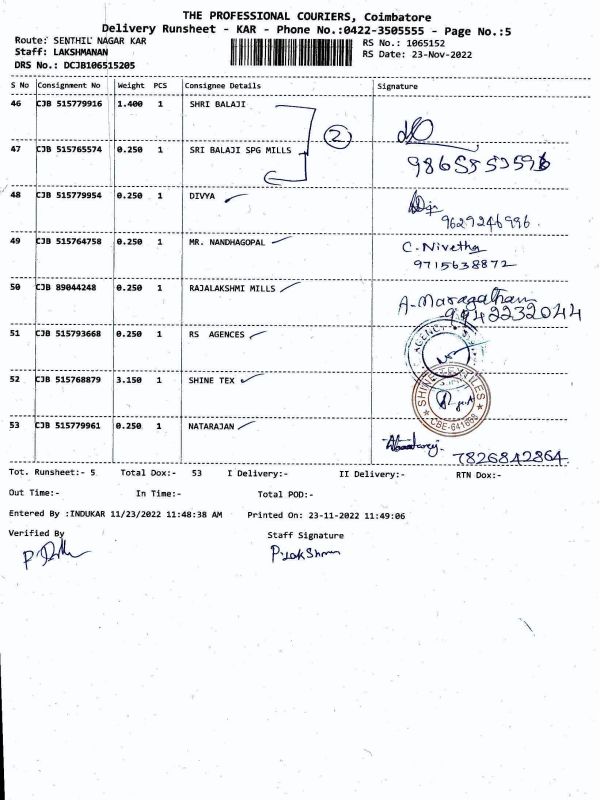 THE PROFESSIONAL COURIERS, Coimbatore
Delivery Runsheet - KAR - Phone No.:0422-3505555 - Page No.:5
Route: SENTHIL NAGAR KAR
RS No.: 1065152
Staff: LAKSHMANAN
RS Date: 23-Nov-2022
DRS No.: DCJB106515205
S No Consignment No Weight PCS Consignee Details Signature
46 CJB 515779916 1.400 1 SHRI BALAJI
2
47 CJB 515765574 0.250 1 SRI BALAJI SPG MILLS
48 CJB 515779954 0.250 1 DIVYA
9629246996.
49 CJB 515764758 0.250 1 MR. NANDHAGOPAL C. Nivetha
9715638872
50 CJB 89044248 0.250 1 RAJALAKSHMI MILLS A-Maragatham
9942232044
51 CJB 515793668 0.250 1 RS AGENCES
52 CJB 515768879 3.150 1 SHINE TEX SHINE TEXTILES
CBE-641668
53 CJB 515779961 0.250 1 NATARAJAN
7826842864.
Tot. Runsheet:- 5 Total Dox:- 53 I Delivery:- II Delivery:- RTN Dox:-
Out Time:- In Time:- Total POD:-
Entered By :INDUKAR 11/23/2022 11:48:38 AM Printed On: 23-11-2022 11:49:06
Verified By Staff Signature